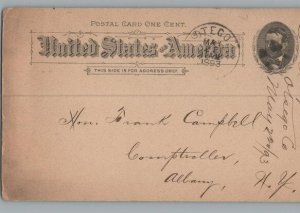 POSTAL CARD ONE CENT.
United States of America
THIS SIDE IS FOR ADDRESS ONLY.
OTEGO
MAY
1893
Hon. Frank Campbell
Comptroller,
Albany, N. Y.
Otsego Co
May 20/93